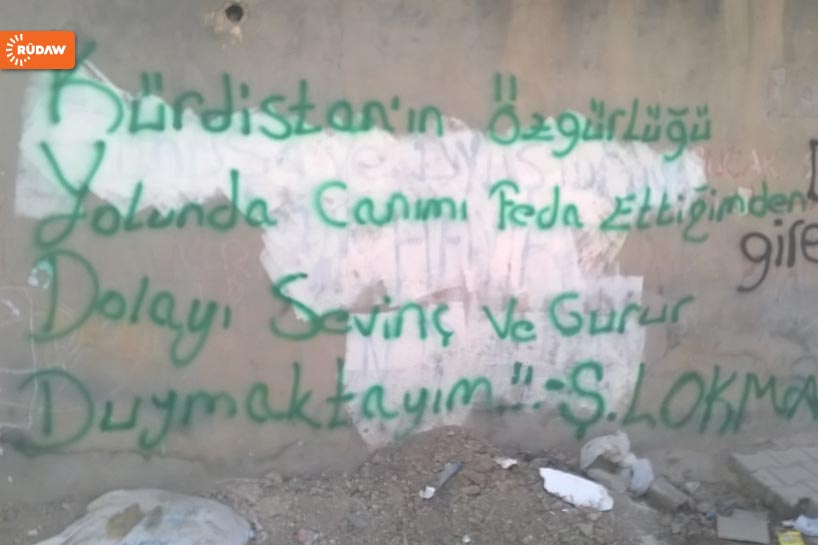 RÛDAW
Kürdistan'ın Özgürlüğü
Yolunda Canımı Feda Ettiğimden
Dolayı Sevinç Ve Gurur
Duymaktayım" - Ş. LOKMA
gire